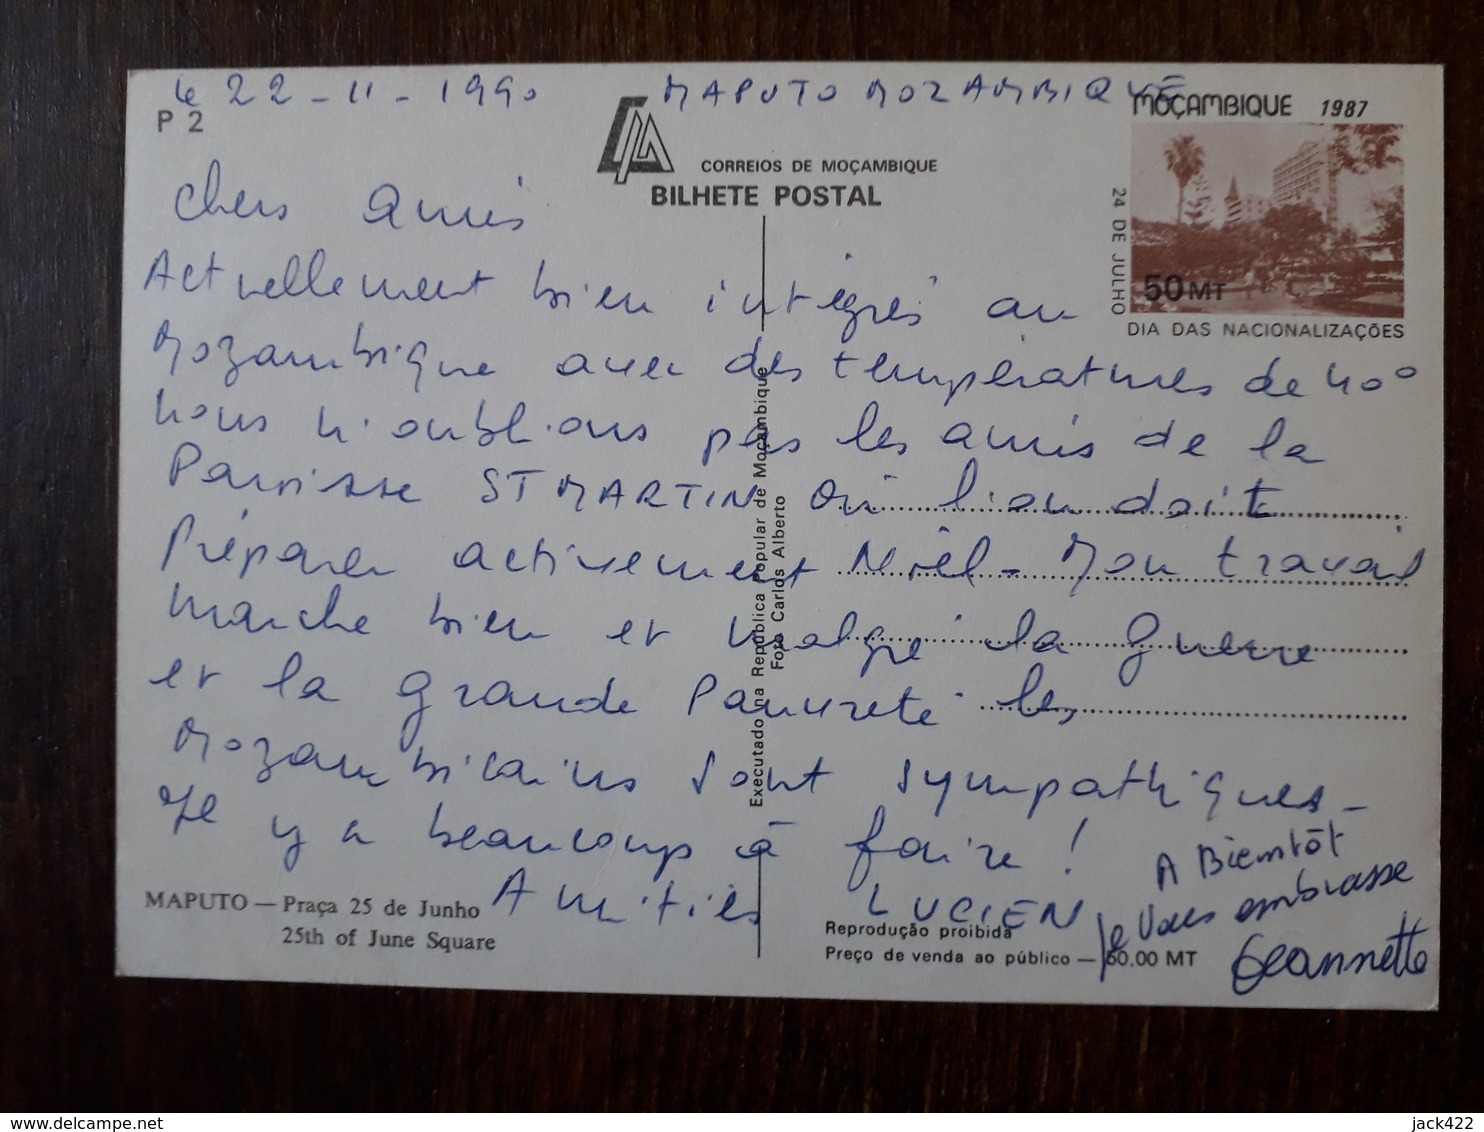 le 22-11-1990 MAPUTO MOZAMBIQUE
P 2
CORREIOS DE MOÇAMBIQUE
BILHETE POSTAL
MOÇAMBIQUE 1987
24 DE JULHO
50 MT
DIA DAS NACIONALIZAÇÕES
Chers amis
Actuellement bien intégrés au
Mozambique avec des températures de 40°
nous n'oublions pas les amis de la
Paroisse ST MARTIN où l'on doit
Préparer activement Noël - Mon travail
marche bien et malgré la guerre
et la grande Pauvreté les
Mozambicains sont sympathiques -
Il y a beaucoup à faire !
Amitiés LUCIEN
A Bientôt
je vous embrasse
Jeannette
Executado na República Popular de Moçambique
Foto Carlos Alberto
MAPUTO — Praça 25 de Junho
25th of June Square
Reprodução proibida
Preço de venda ao público — 60.00 MT
delcampe.net
jack422